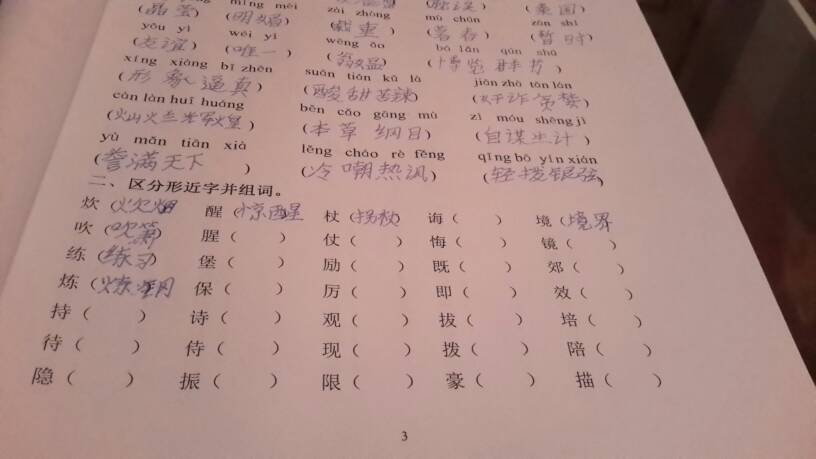 míng mèi
(晶莹) (明媚) zài zhòng mù chūn zàn shí
yǒu yì wéi yī (载重) (暮春) (暂时)
(友谊) (唯一) wēng bó lǎn qún shū
xíng xiàng bī zhēn (博览群书)
(形象逼真) suān tián kǔ là jiān zhà tān lán
càn làn huī huáng (酸甜苦辣) (奸诈贪婪)
(灿烂辉煌) běn cǎo gāng mù zì móu shēng jì
yù mǎn tiān xià (本草纲目) (自谋生计)
(誉满天下) lěng cháo rè fěng qīng bō yín xián
(冷嘲热讽) (轻拨银弦)
二、区分形近字并组词。
炊(炊烟) 醒(惊醒) 杖(拐杖) 诲( ) 境(境界)
吹(吹箫) 腥( ) 仗( ) 悔( ) 镜( )
练(练习) 堡( ) 励( ) 既( ) 郊( )
炼(炼钢) 保( ) 厉( ) 即( ) 效( )
持( ) 诗( ) 观( ) 拔( ) 培( )
待( ) 侍( ) 现( ) 拨( ) 陪( )
隐( ) 振( ) 限( ) 豪( ) 描( )
3